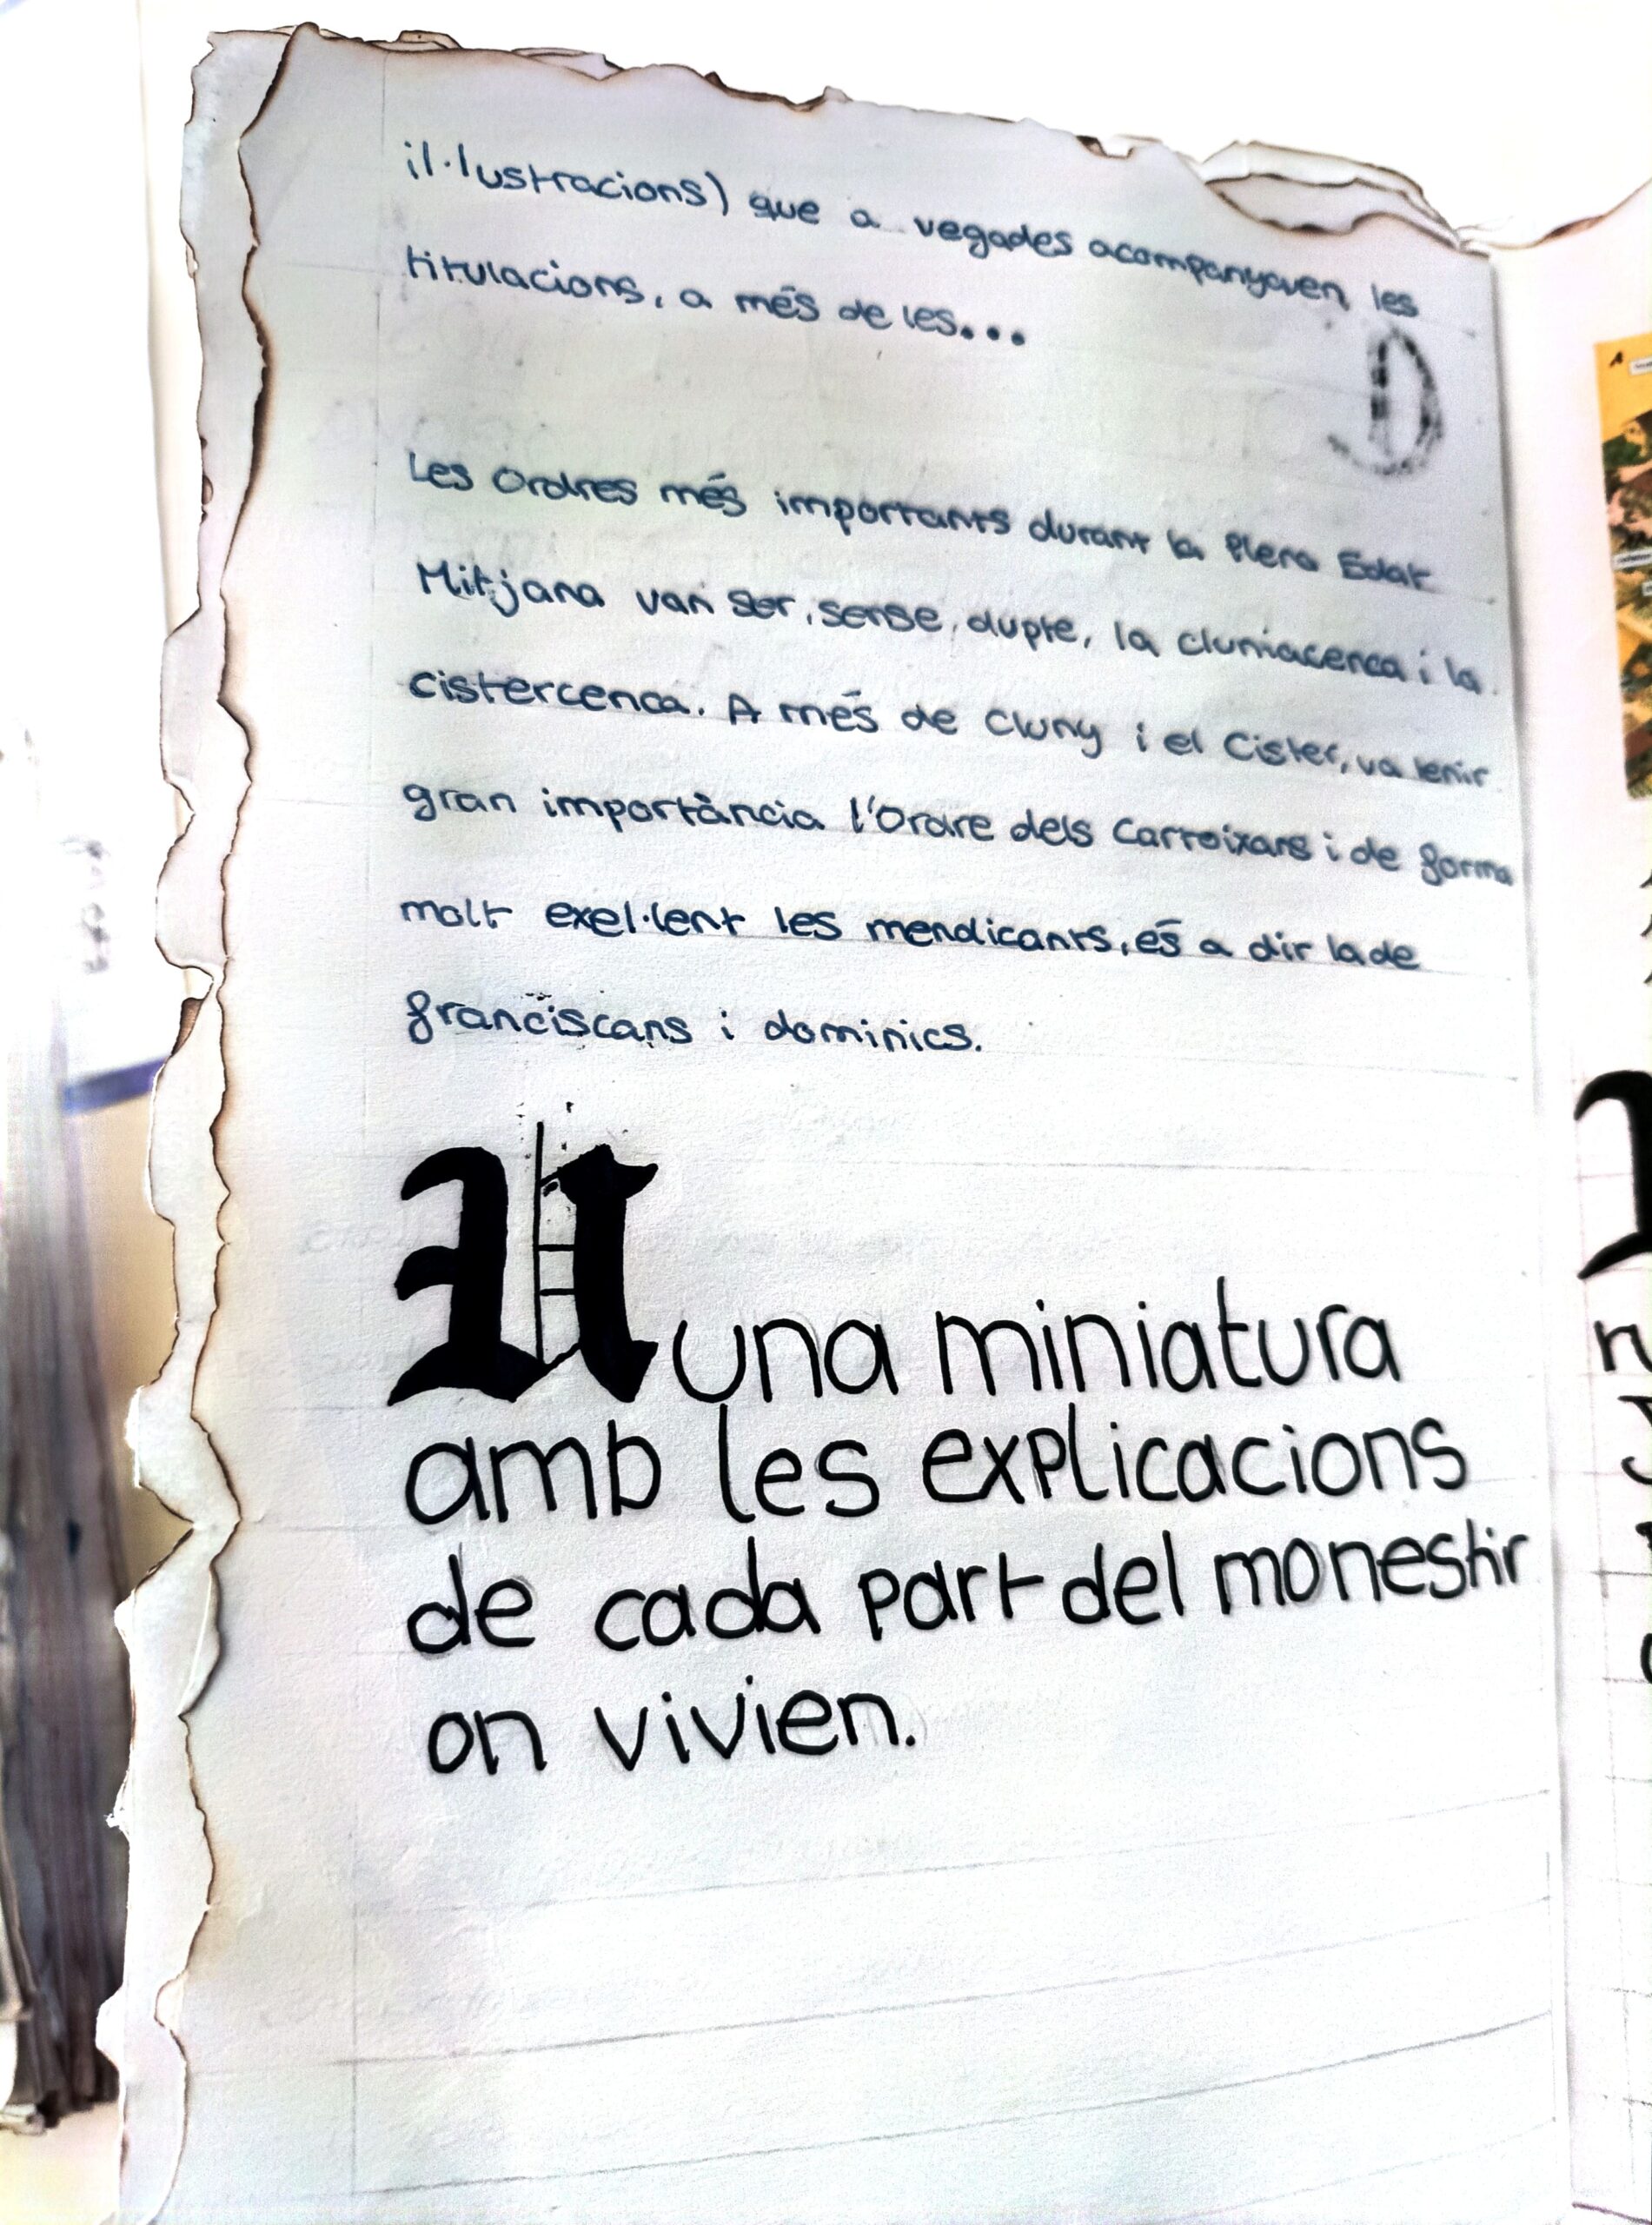 il·lustracions) que a vegades acompanyaven les
titulacions, a més de les...
Les Ordres més importants durant la Plena Edat
Mitjana van ser, sense, dupte, la cluniacenca i la
cistercenca. A més de Cluny i el Cister, va tenir
gran importància l'Ordre dels Carroixans i de forma
molt exel·lent les mendicants, és a dir la de
franciscans i dominics.
U una miniatura
amb les explicacions
de cada part del monestir
on vivien.